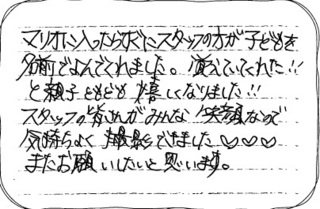 マリオに入ったらすぐにスタッフの方が子どもを
名前でよんでくれました。覚えていてくれた!!
と親子ともども嬉しくなりました!!
スタッフの皆さんがみんな笑顔なので
気持ちよく撮影できました♡♡♡
またお願いしたいと思います。